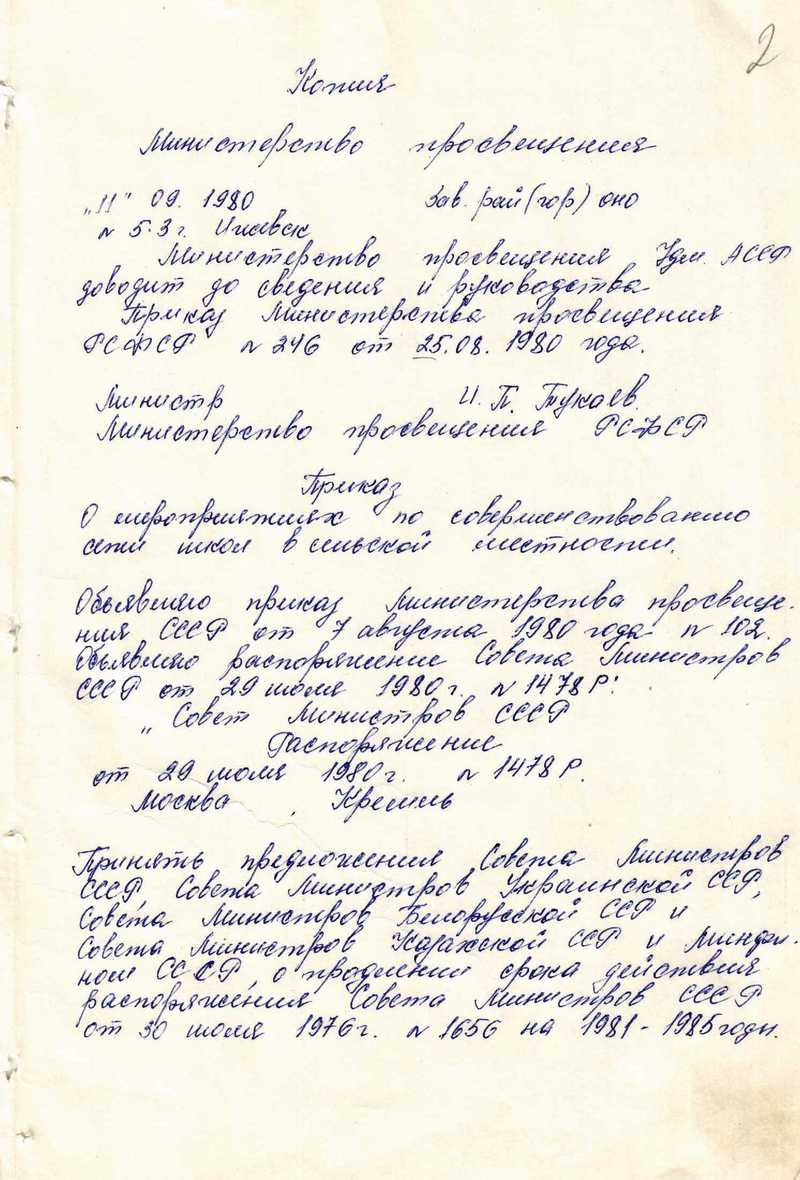 2
Копия
Министерство просвещения
"11" 09. 1980 Зав. рай(гор) оно
№ 5-3 г. Ижевск
Министерство просвещения Удм. АССР
доводит до сведения и руководства
Приказ Министерства просвещения
РСФСР № 246 от 25.08. 1980 года.
Министр И. П. Тукаев.
Министерство просвещения РСФСР
Приказ
О мероприятиях по совершенствованию
сети школ в сельской местности.
Объявляю приказ Министерства просвеще-
ния СССР от 7 августа 1980 года № 102.
Объявляю распоряжение Совета Министров
СССР от 29 июля 1980 г. № 1478 Р:
„ Совет Министров СССР
Распоряжение
от 29 июля 1980 г. № 1478 Р.
Москва , Кремль
Принять предложения Совета Министров
СССР, Совета Министров Украинской ССР,
Совета Министров Белорусской ССР и
Совета Министров Казахской ССР и
ном СССР, о продлении срока действия
распоряжения Совета Министров СССР
от 30 июля 1976 г. № 1656 на 1981 - 1985 годы.